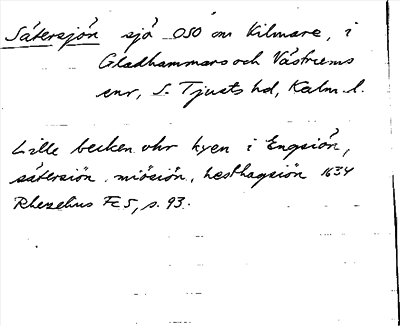 Sätersjön sjö OSO om Kilmare, i
Gladhammars och Västrums
snr, S. Tjusts hd, Kalm. l.
Lille becken vhr kyen i Engsiön,
sätersiön, miösiön, hesthagsiön 1634
Rhezelius FE5, s. 93.